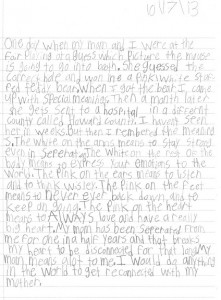 10/7/13
One day when my mom and I were at the
fair playing at a guess which picture the mouse
is going to go into booth. She guessed the
correct hole and won me a Pink White Star
ed teddy bear. When I got the bear I came
up with special meanings. Then a month later
she gets sent to a hospital in a different
county called flowers county. I havent seen
her in weeks. But then I rembered the meaning
s. The white on the arms means to stay strong
even in seperation. The white on the rest on the
body means to express Your emotions to the
world. The pink on the ears means to listen
and to think wisley. The pink on the feet
means to never ever back down, and to
keep on going. The pink on the heart
means to ALWAYS love and have a really
big heart. My mom has been seperated from
me for one in a half years and that breaks
my heart to be disconnected for that long. My
mom means alot to me. I would do anything
in the world to get reconnected with my
mother.